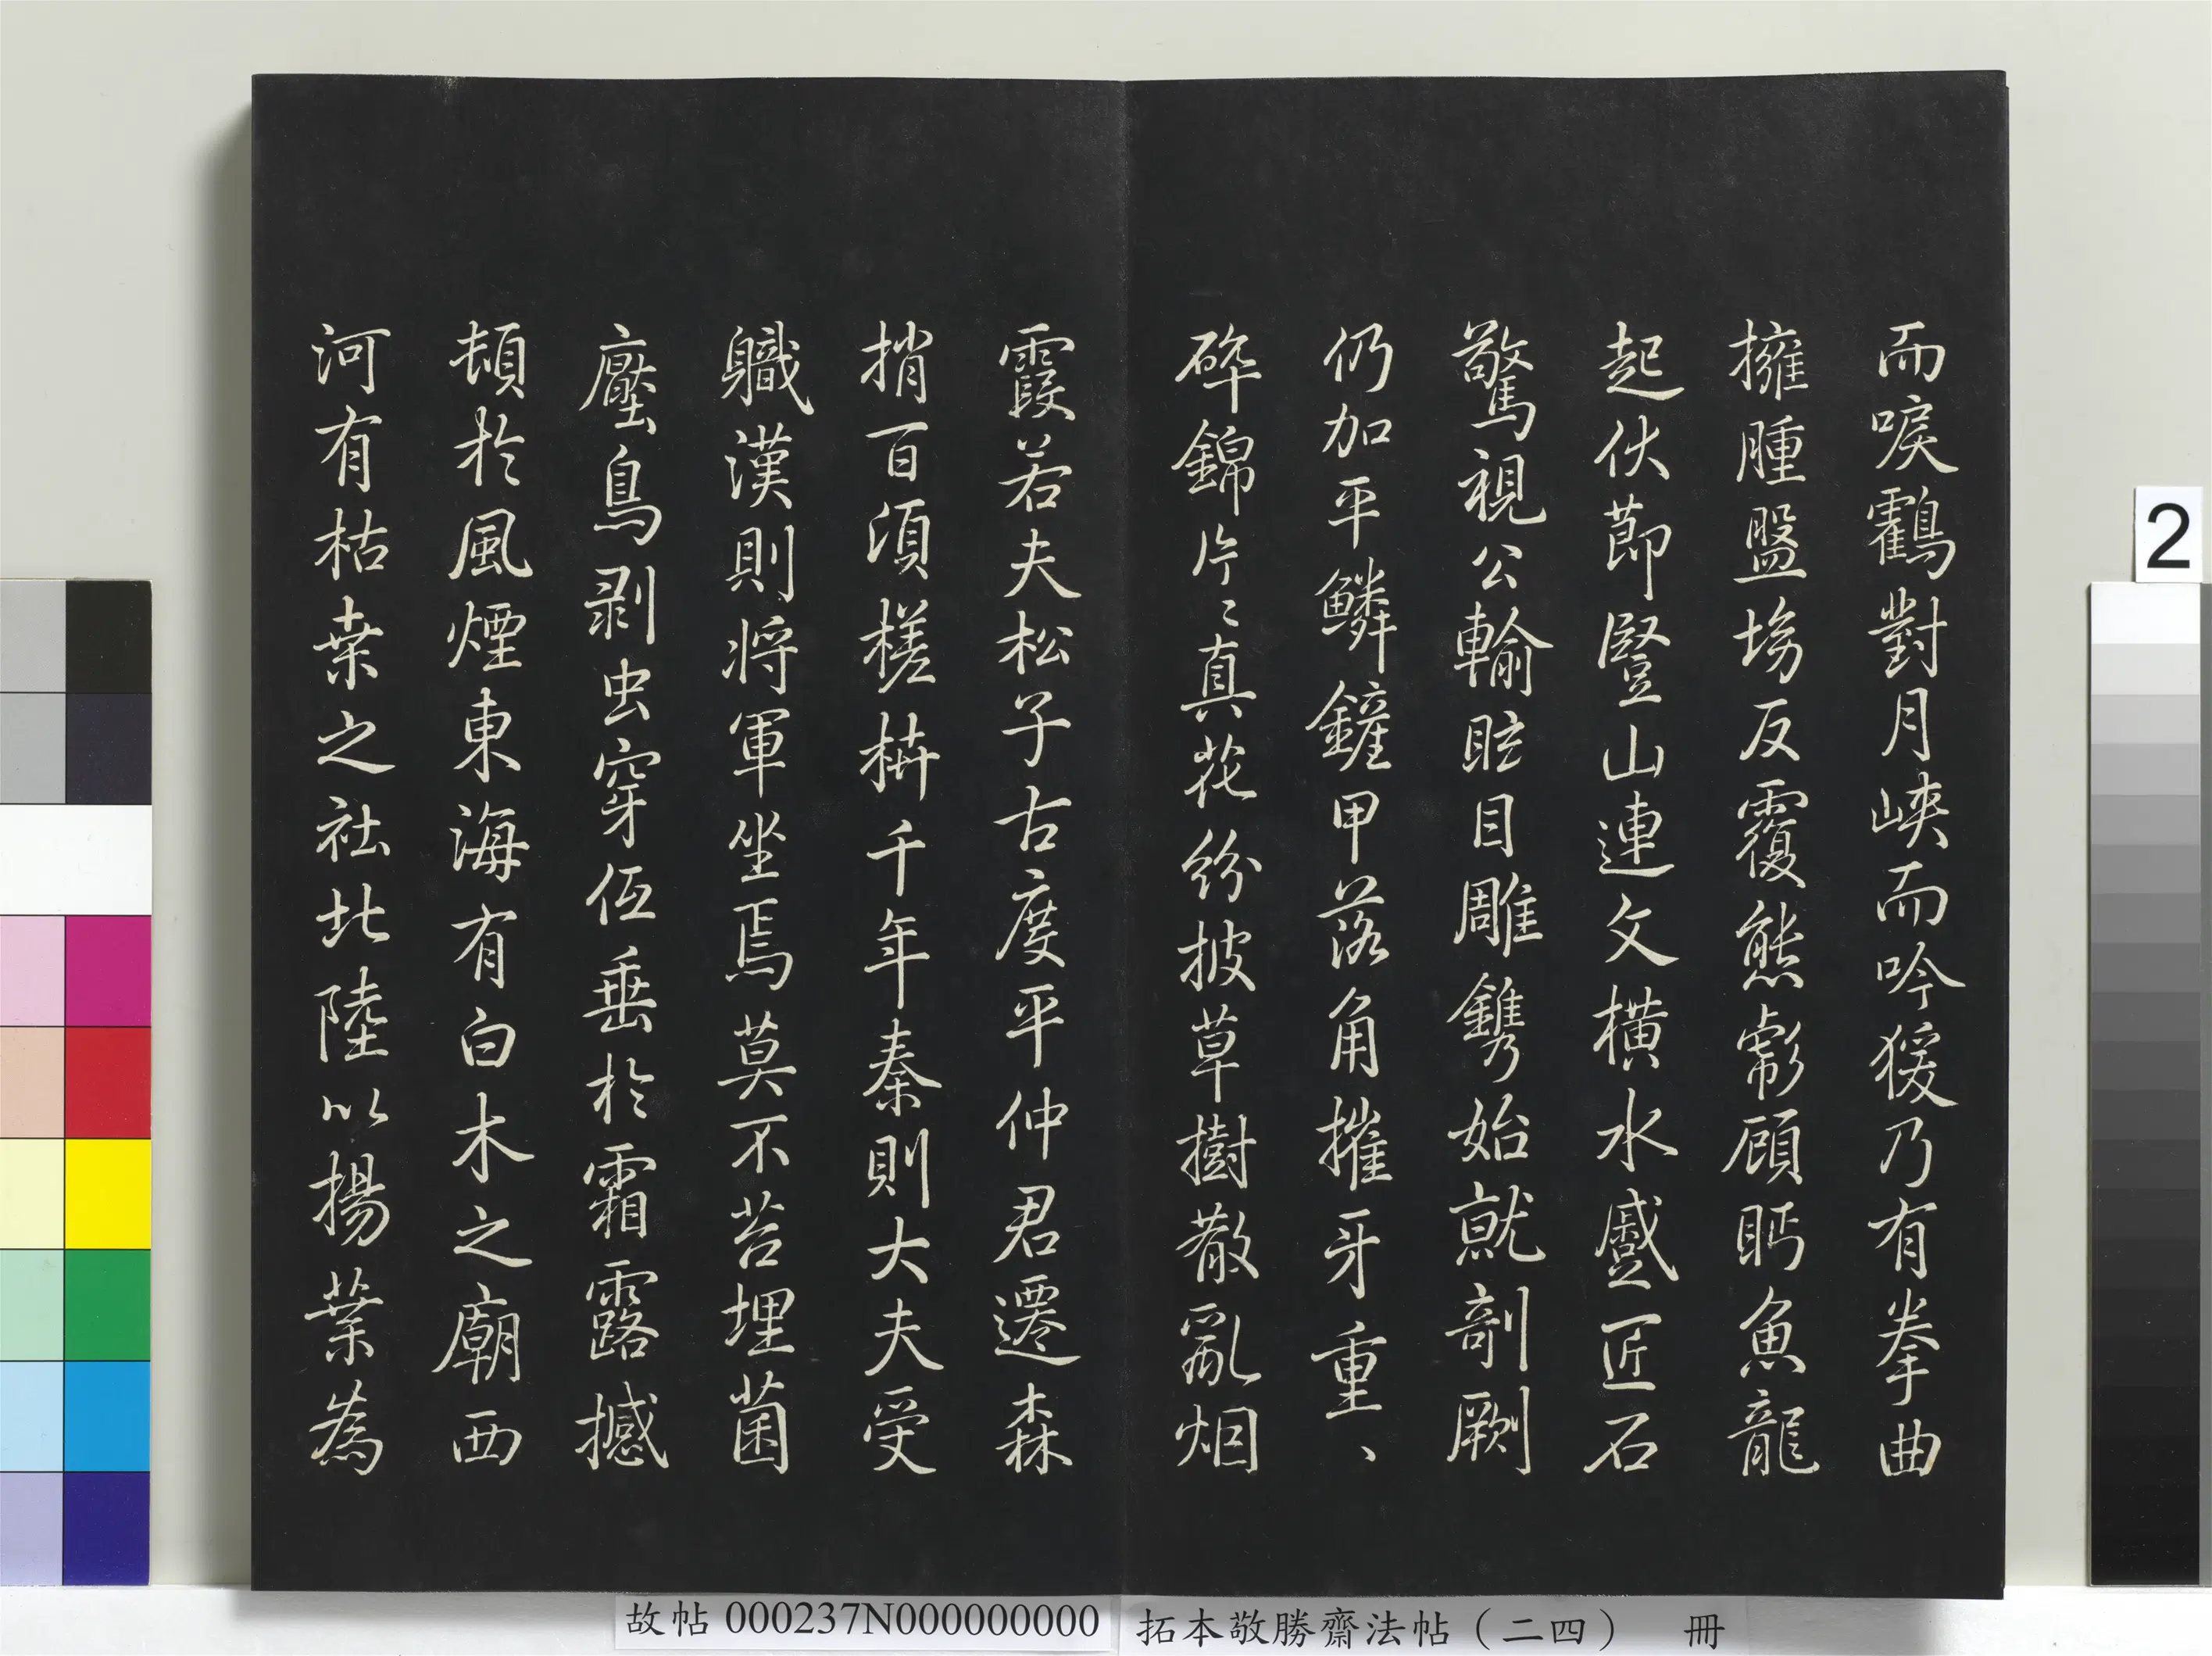 而唳鸖對月峽而吟猨乃有拳曲
擁腫盤坳反覆熊彪顧眄魚龍
起伏莭豎山連文橫水蹙匠石
驚視公輸眩目雕鐫始就剞劂
仍加平鱗鏟甲落角摧牙重丶
碎錦片〻真花紛披草樹散亂烟
霞若夫松子古度平仲君遷森
梢百湏槎枿千年秦則大夫受
軄漢則将軍坐焉莫不苔埋菌
壓鳥剥虫穿低垂於霜露撼
頓於風煙東海有白木之廟西
河有枯桒之社北陸以楊葉為
2
故帖 000237N000000000
拓本敬勝齋法帖（二四） 冊